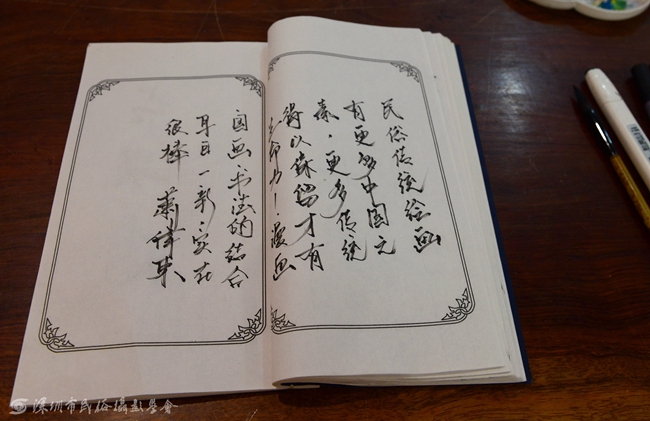 民俗传统绘画
有更多中国元
素,更多传统
得以保留才有
生命力!漫画
国画、书法的结合
耳目一新,实在
很棒
深圳市民俗攝影學會